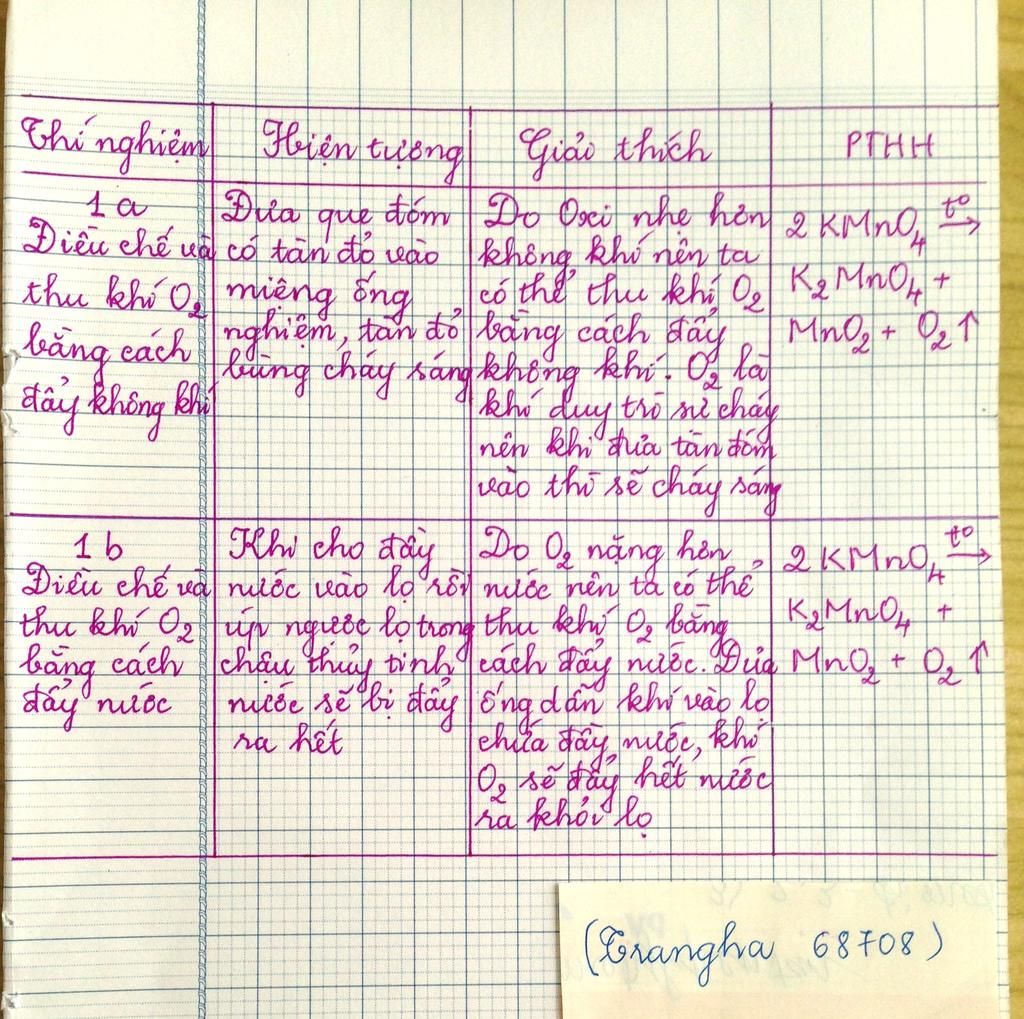 Thí nghiệm
Hiện tượng
Giải thích
PTHH
1a
Điều chế và
thu khí O₂
bằng cách
đẩy không khí
Đưa que đóm
có tàn đỏ vào
miệng ống
nghiệm, tàn đỏ
bùng cháy sáng
Do Oxi nhẹ hơn
không khí nên ta
có thể thu khí O₂
bằng cách đẩy
không khí. O₂ là
khí duy trì sự cháy
nên khi đưa tàn đóm
vào thì sẽ cháy sáng
2 KMnO₄ t° →
K₂MnO₄ +
MnO₂ + O₂ ↑
1b
Điều chế và
thu khí O₂
bằng cách
đẩy nước
Khi cho đầy
nước vào lọ rồi
úp ngược lọ trong
chậu thủy tinh
nước sẽ bị đẩy
ra hết
Do O₂ nặng hơn
nước nên ta có thể
thu khí O₂ bằng
cách đẩy nước. Đưa
ống dẫn khí vào lọ
chứa đầy nước, khí
O₂ sẽ đẩy hết nước
ra khỏi lọ
2 KMnO₄ t° →
K₂MnO₄ +
MnO₂ + O₂ ↑
(Trangha 68708)